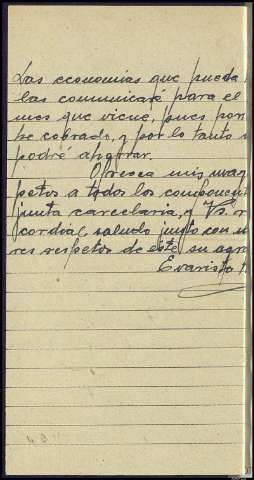 Las economías que pueda
las comunicaré para el
mes que viene, pues
he cobrado, y por lo tanto
podré ahorrar.
Ofrezca mis
petos a todos los
junta carcelaria, y Vs.
cordial saludo junto con
res respetos de este su
Evaristo
43